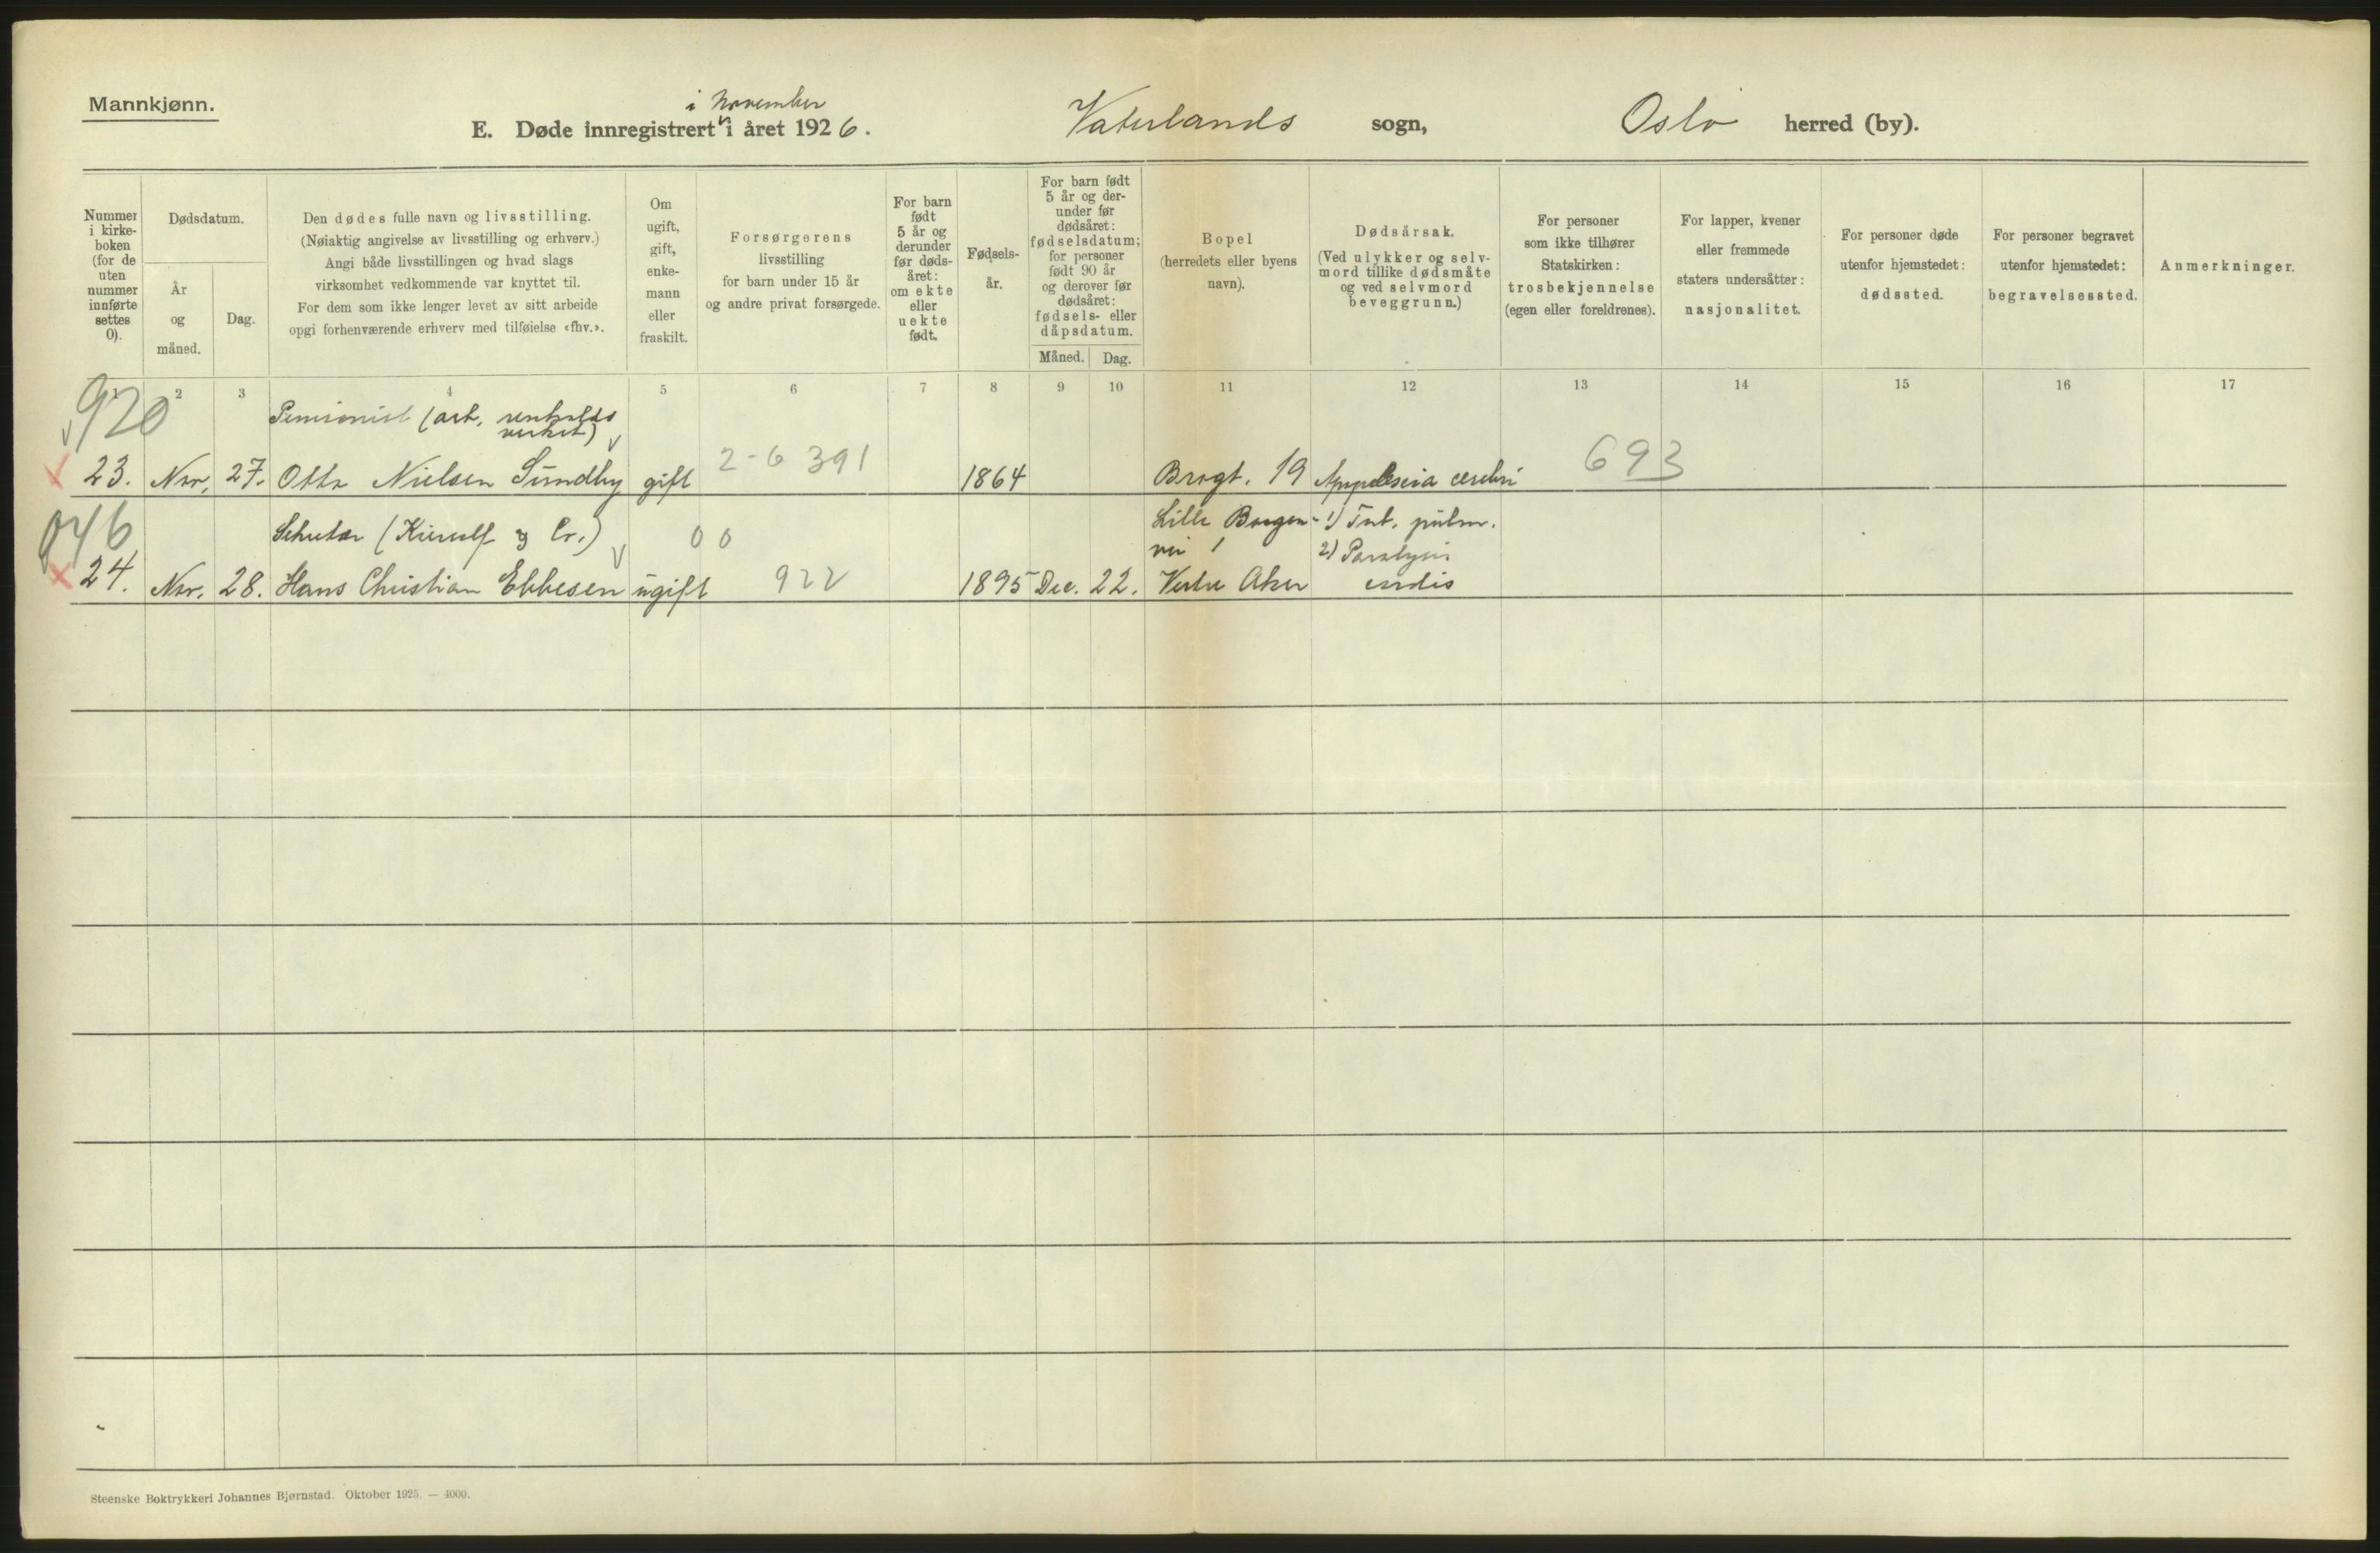 Mannkjønn.
i November
E. Døde innregistrert i året 1926. Vaterlands sogn, Oslo herred (by).
Nummer i kirke-boken (for de uten nummer innførte settes 0).
Dødsdatum.
År og måned.
Dag.
Den dødes fulle navn og livsstilling.
(Nøiaktig angivelse av livsstilling og erhverv.)
Angi både livsstillingen og hvad slags
virksomhet vedkommende var knyttet til.
For dem som ikke lenger levet av sitt arbeide
opgi forhenværende erhverv med tilføielse «fhv.».
Om ugift, gift, enke-mann eller fraskilt.
Forsørgerens
livsstilling
for barn under 15 år
og andre privat forsørgede.
For barn født 5 år og derunder før døds-året: om ekte eller uekte født.
Fødsels-år.
For barn født 5 år og der-under før dødsåret: fødselsdatum; for personer født 90 år og derover før dødsåret: fødsels- eller dåpsdatum.
Måned. Dag.
Bopel
(herredets eller byens
navn).
Dødsårsak.
(Ved ulykker og selv-
mord tillike dødsmåte
og ved selvmord
beveggrunn.)
For personer
som ikke tilhører
Statskirken:
trosbekjennelse
(egen eller foreldrenes).
For lapper, kvener
eller fremmede
staters undersåtter:
nasjonalitet.
For personer døde
utenfor hjemstedet:
dødssted.
For personer begravet
utenfor hjemstedet:
begravelsessted.
Anmerkninger.
2 3 4 5 6 7 8 9 10 11 12 13 14 15 16 17
920
Pensionist (arb. renholds
verket)
23. Nov. 27. Otto Nielsen Sundby gift 2-6 391 1864 Brogt. 19 Apoplexia cerebri 693
046
(Kierulf & Co.) 00 Lille Borgen- 1) Tub. pulm.
vei 1 2) Paralysis
24. Nov. 28. Hans Christian Ebbesen ugift 922 1895 Dec. 22. Vestre Aker cordis
Steenske Boktrykkeri Johannes Bjørnstad. Oktober 1925. — 4000.